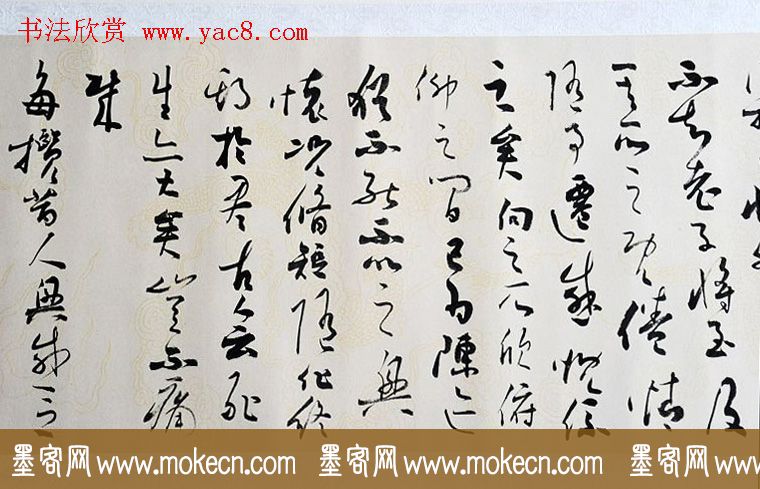 书法欣赏 www.yac8.com
不知老之將至及
其所之既倦情
隨事遷感慨係
之矣向之所欣俯
仰之間已為陳迹
猶不能不以之興
懷況脩短隨化終
期於盡古人云死
生亦大矣豈不痛
哉
每攬昔人興感之
墨客网 www.mokecn.com 墨客网 www.mokecn.com 墨客